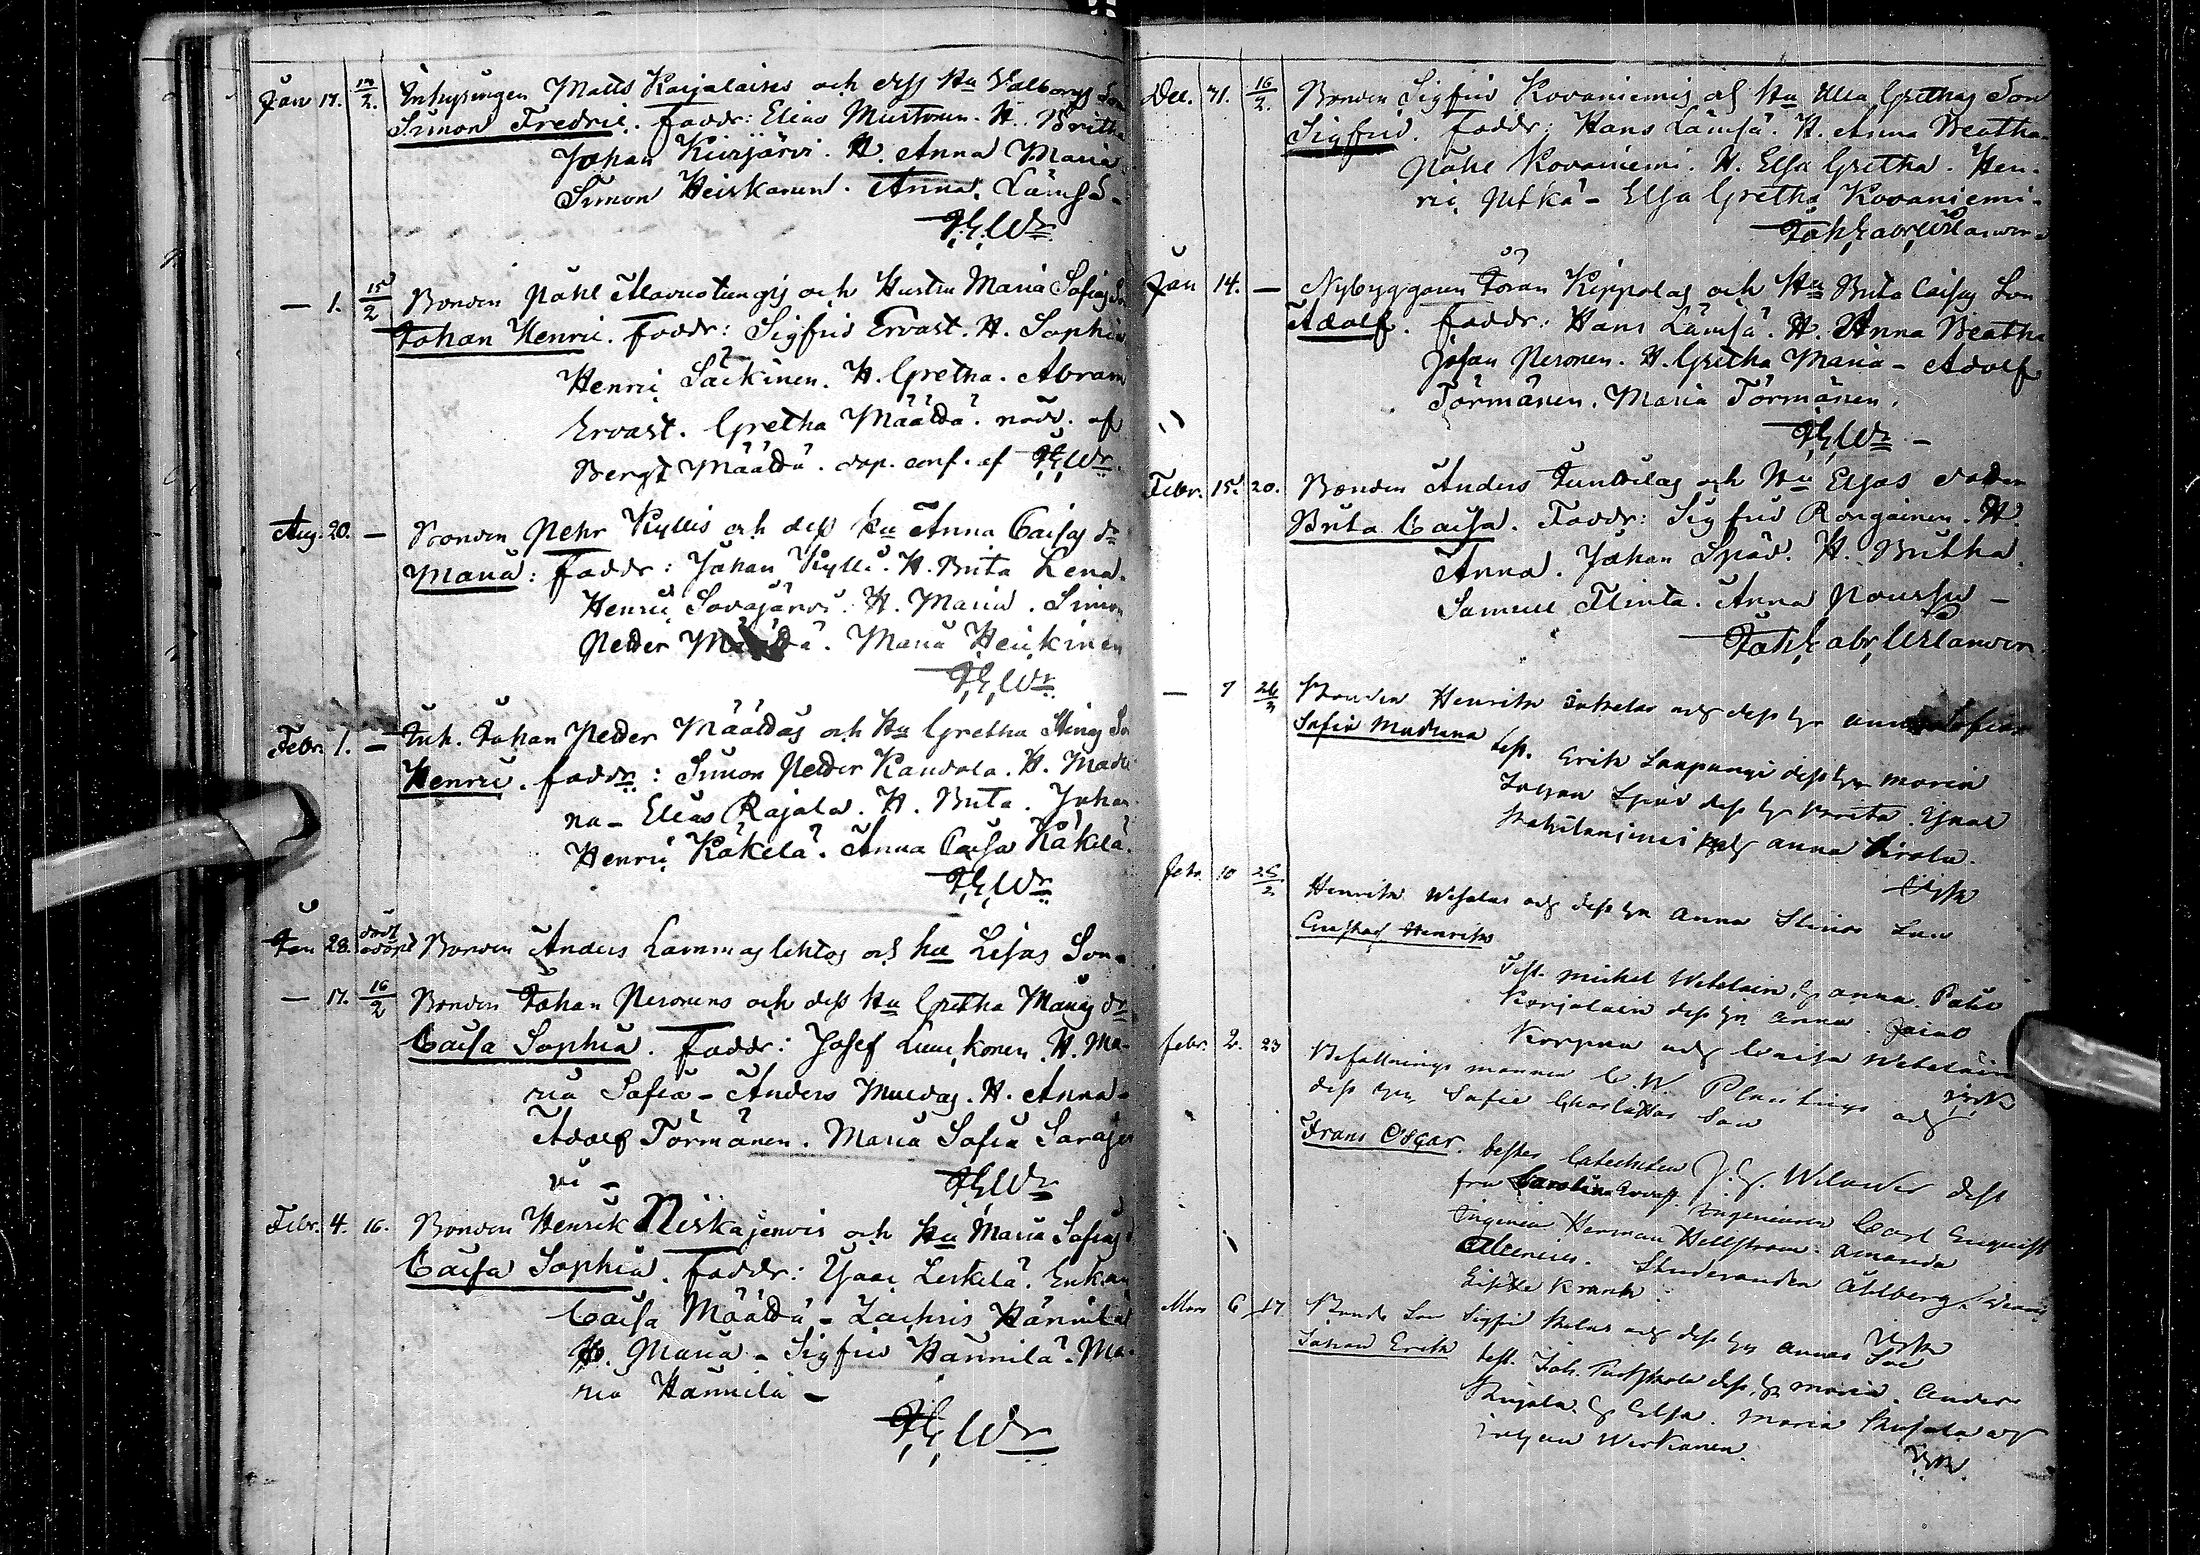 Jan 17. 12/2. Inhysingen Matts Karjalaines och dess Hu Valborgs Son
Simon Fredric. Faddr: Elias Mustonen. H. Britha
Johan Kuirjärvi. H. Anna Maria
Simon Heiskanen. Anna Lämsä -
J.G.Wr
— 1. 15/2 Bonden Påhl Mavuotungis och Hustru Maria Sofias
Johan Henric. Faddr: Sigfrid Ervast. H. Sophia
Henric Säckinen. H. Gretha. Abram
Ervast. Gretha Määttä. nöd. af
Bengt Määttä. dop. conf. af J.G.Wr.
Aug. 20. — Bonden Pehr Kyllis och dess hu Anna Caisas dr
Maria: faddr: Johan Kylli. H. Brita Lena.
Henric Sovajärvi. H. Maria. Simon
Petter Määttä. Maria Heikinen
J.G.Wr
Febr. 1. — Inh. Johan Petter Määttäs och Hu Gretha Stinas
Henric. faddr: Simon Petter Kandola. H. Made
na - Elias Rajala. H. Brita. Johan
Henric Käkelä. Anna Caisa Käkelä.
J.G.Wr
Jan 28. död odöpt Bonden Anders Lammaslehtos och hu Lisas Son -
— 17. 16/2 Bonden Johan Peronens och dess Hu Gretha Marias dr
Caisa Sophia. Faddr: Josef Luukonen. H. Ma-
ria Safia - Anders Murdag. H. Anna -
Adolf Törmänen. Maria Sofia Sarajer
vi -
J.G.Wr
Febr. 4. 16. Bonden Henrik Niskajervis och Hu Maria Sofias
Caisa Sophia. Faddr: Isaac Leskelä. Enkan
Caisa Määttä - Zachris Hännilä
H. Maria - Sigfrid Hännilä. Ma-
ria Hännilä -
J.G.Wr
Dec. 31. 16/2. Bonden Sigfrid Kovaniemis och Hu Ulla Grethas Son
Sigfrid. Faddr: Hans Lämsä. H. Anna Beatha
Påhl Kovaniemi. H. Elsa Gretha. Hen-
ric Pitkä - Elsa Gretha Kovaniemi -
Joh Gabr Wilander
Jan 14. — Nybyggaren Jöran Kippolas och Hu Brita Caisas Son
Adolf. Faddr: Hans Lämsä. H. Anna Beatha
Johan Peronen. H. Gretha Maria - Adolf
Törmänen. Maria Törmänen.
J.G.Wr -
Febr. 15. 20. Bonden Anders Junttilas och Hu Elsas dotter
Brita Caisa. Faddr: Sigfrid Rongainen. H.
Anna. Johan Spåd. H. Britha.
Samuel Flinta. Anna -
Joh Gabr Wilander
— 7 26/2 Bonden Henrik och dess Anna Sofias
Sofia Madlena
test. Erik Laapungi dess Maria
Johan Späd dess Brita. Isaac
Anna Sirola.
Febr. 10 25/2 Henrik och dess Anna Stinas Son
Gustaf Henrik
Test. Michel Wetelain, Anna. Påhl
Karjalain dess Anna. Jacob
Korpua och Caisa Wetelain
febr. 2. 23 Befallnings mannen C. W. Planting och
dess Sofie Charlottas Son
Frans Oscar. testes Catecheten J. G. Wilander dess
fru Carolina Ervast. Ingenieuren Carl Enqvist
Ingenieu Herman Hellström. Amanda
Studeranden Ahlberg.
Lisette Krank.
Mars 6 17 Bonde Son Sigfrid och dess Annas Son
Johan Erik
test. Joh. dess Maria. Anders
Rujala. Elsa. Maria och
Johan Wirkanen.